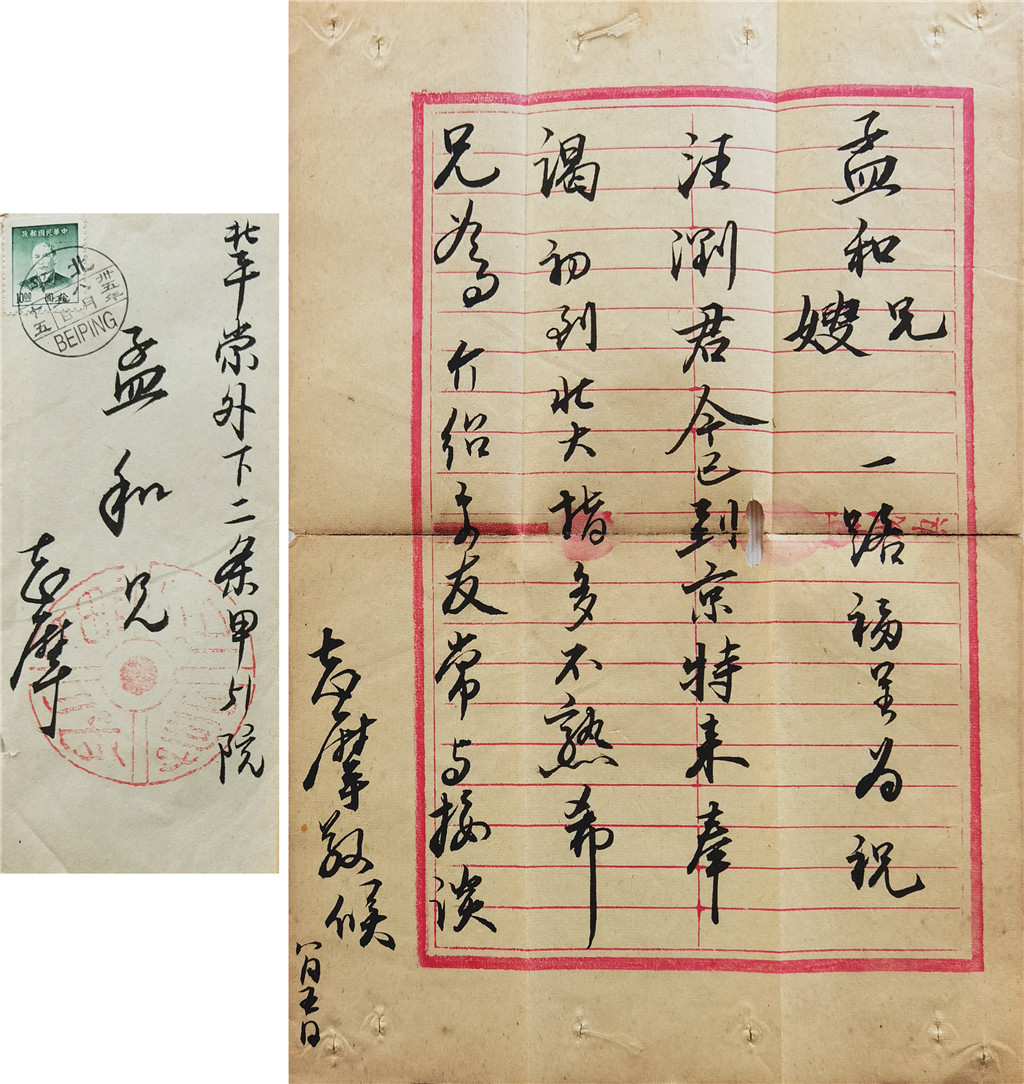 北平崇外下二条甲51院
孟和兄
志摩
中華民國郵政
10.00
北平
卅五年
八月廿
十五
BEIPING
孟和兄
嫂
一路福星为祝
汪浏君今已到京特来奉
谒初到北大指多不熟希
兄為介绍交友常与接谈
志摩敬候
八月五日